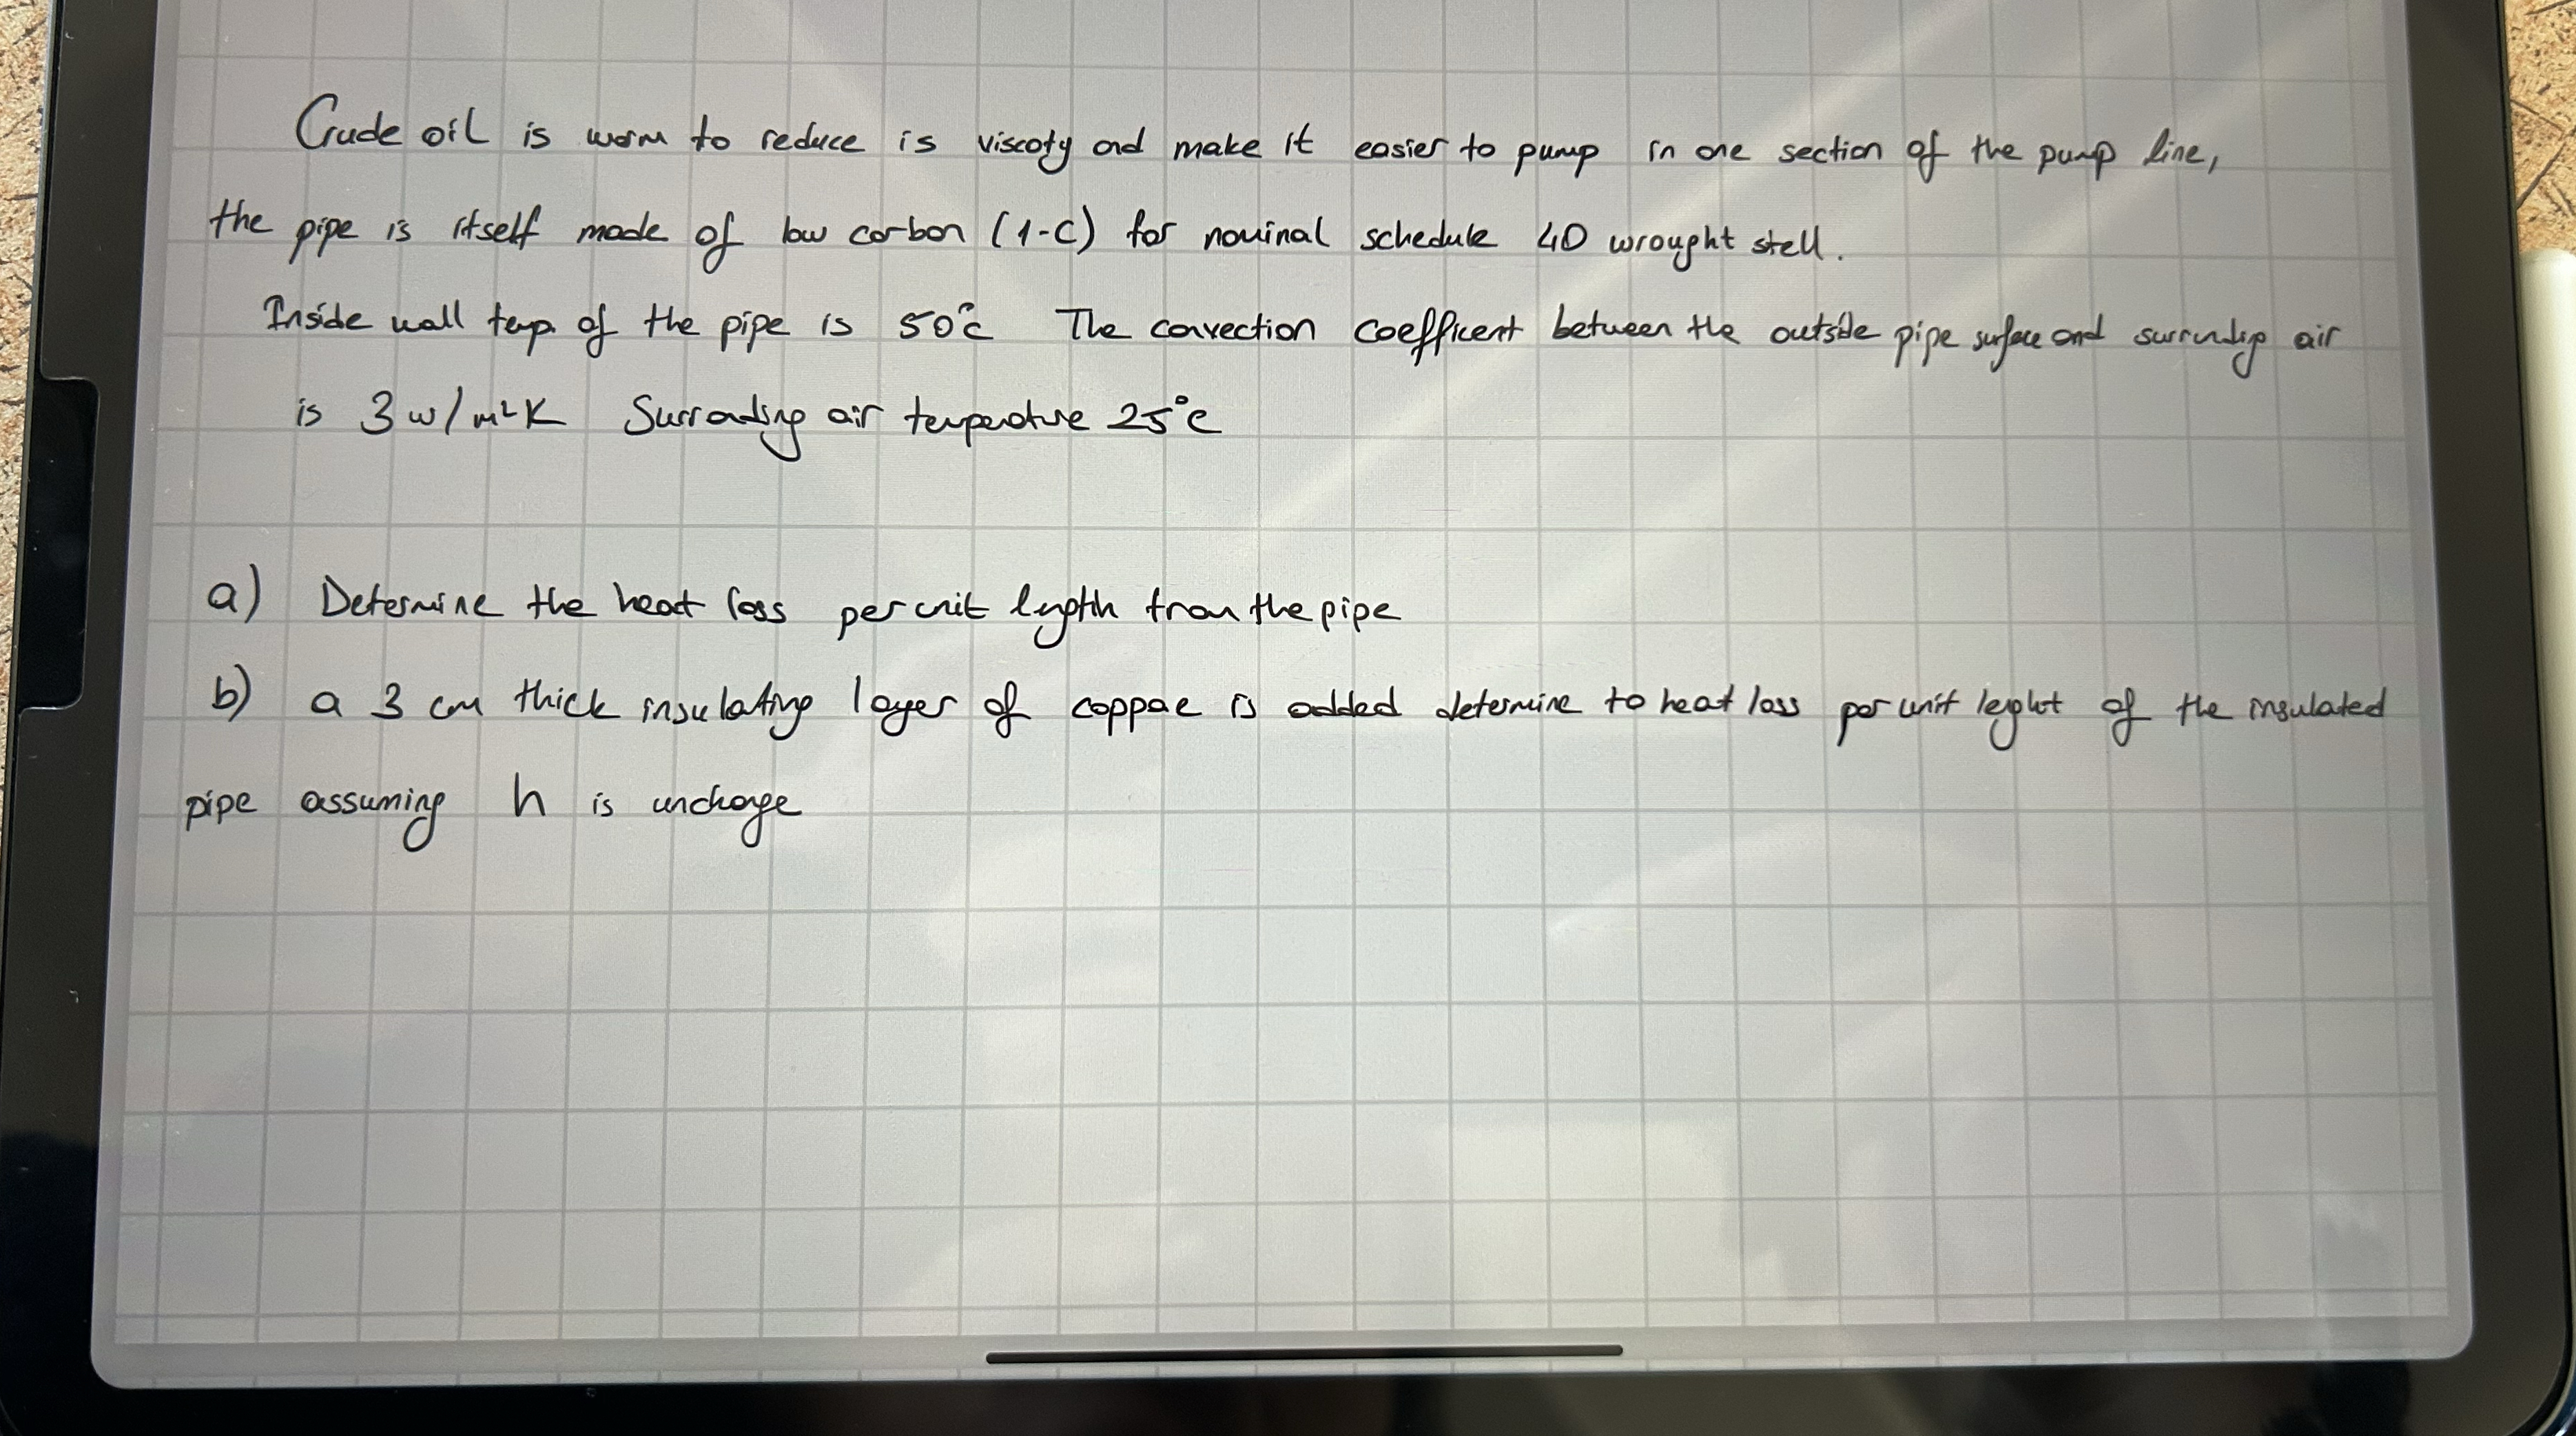 Crude oil is worm to reduce is viscoty and make it easier to pump in one section of the pump line,
the pipe is itself made of low carbon (1-C) for nominal schedule 40 wrought stell.
Inside wall temp. of the pipe is 50°C The convection coefficent between the outside pipe surface and surrunding air
is 3 w/m²K Surrounding air temperature 25°C
a) Determine the heat loss per unit length from the pipe
b) a 3 cm thick insulating layer of coppae is added determine to heat loss per unit leght of the insulated
pipe assuming h is unchange